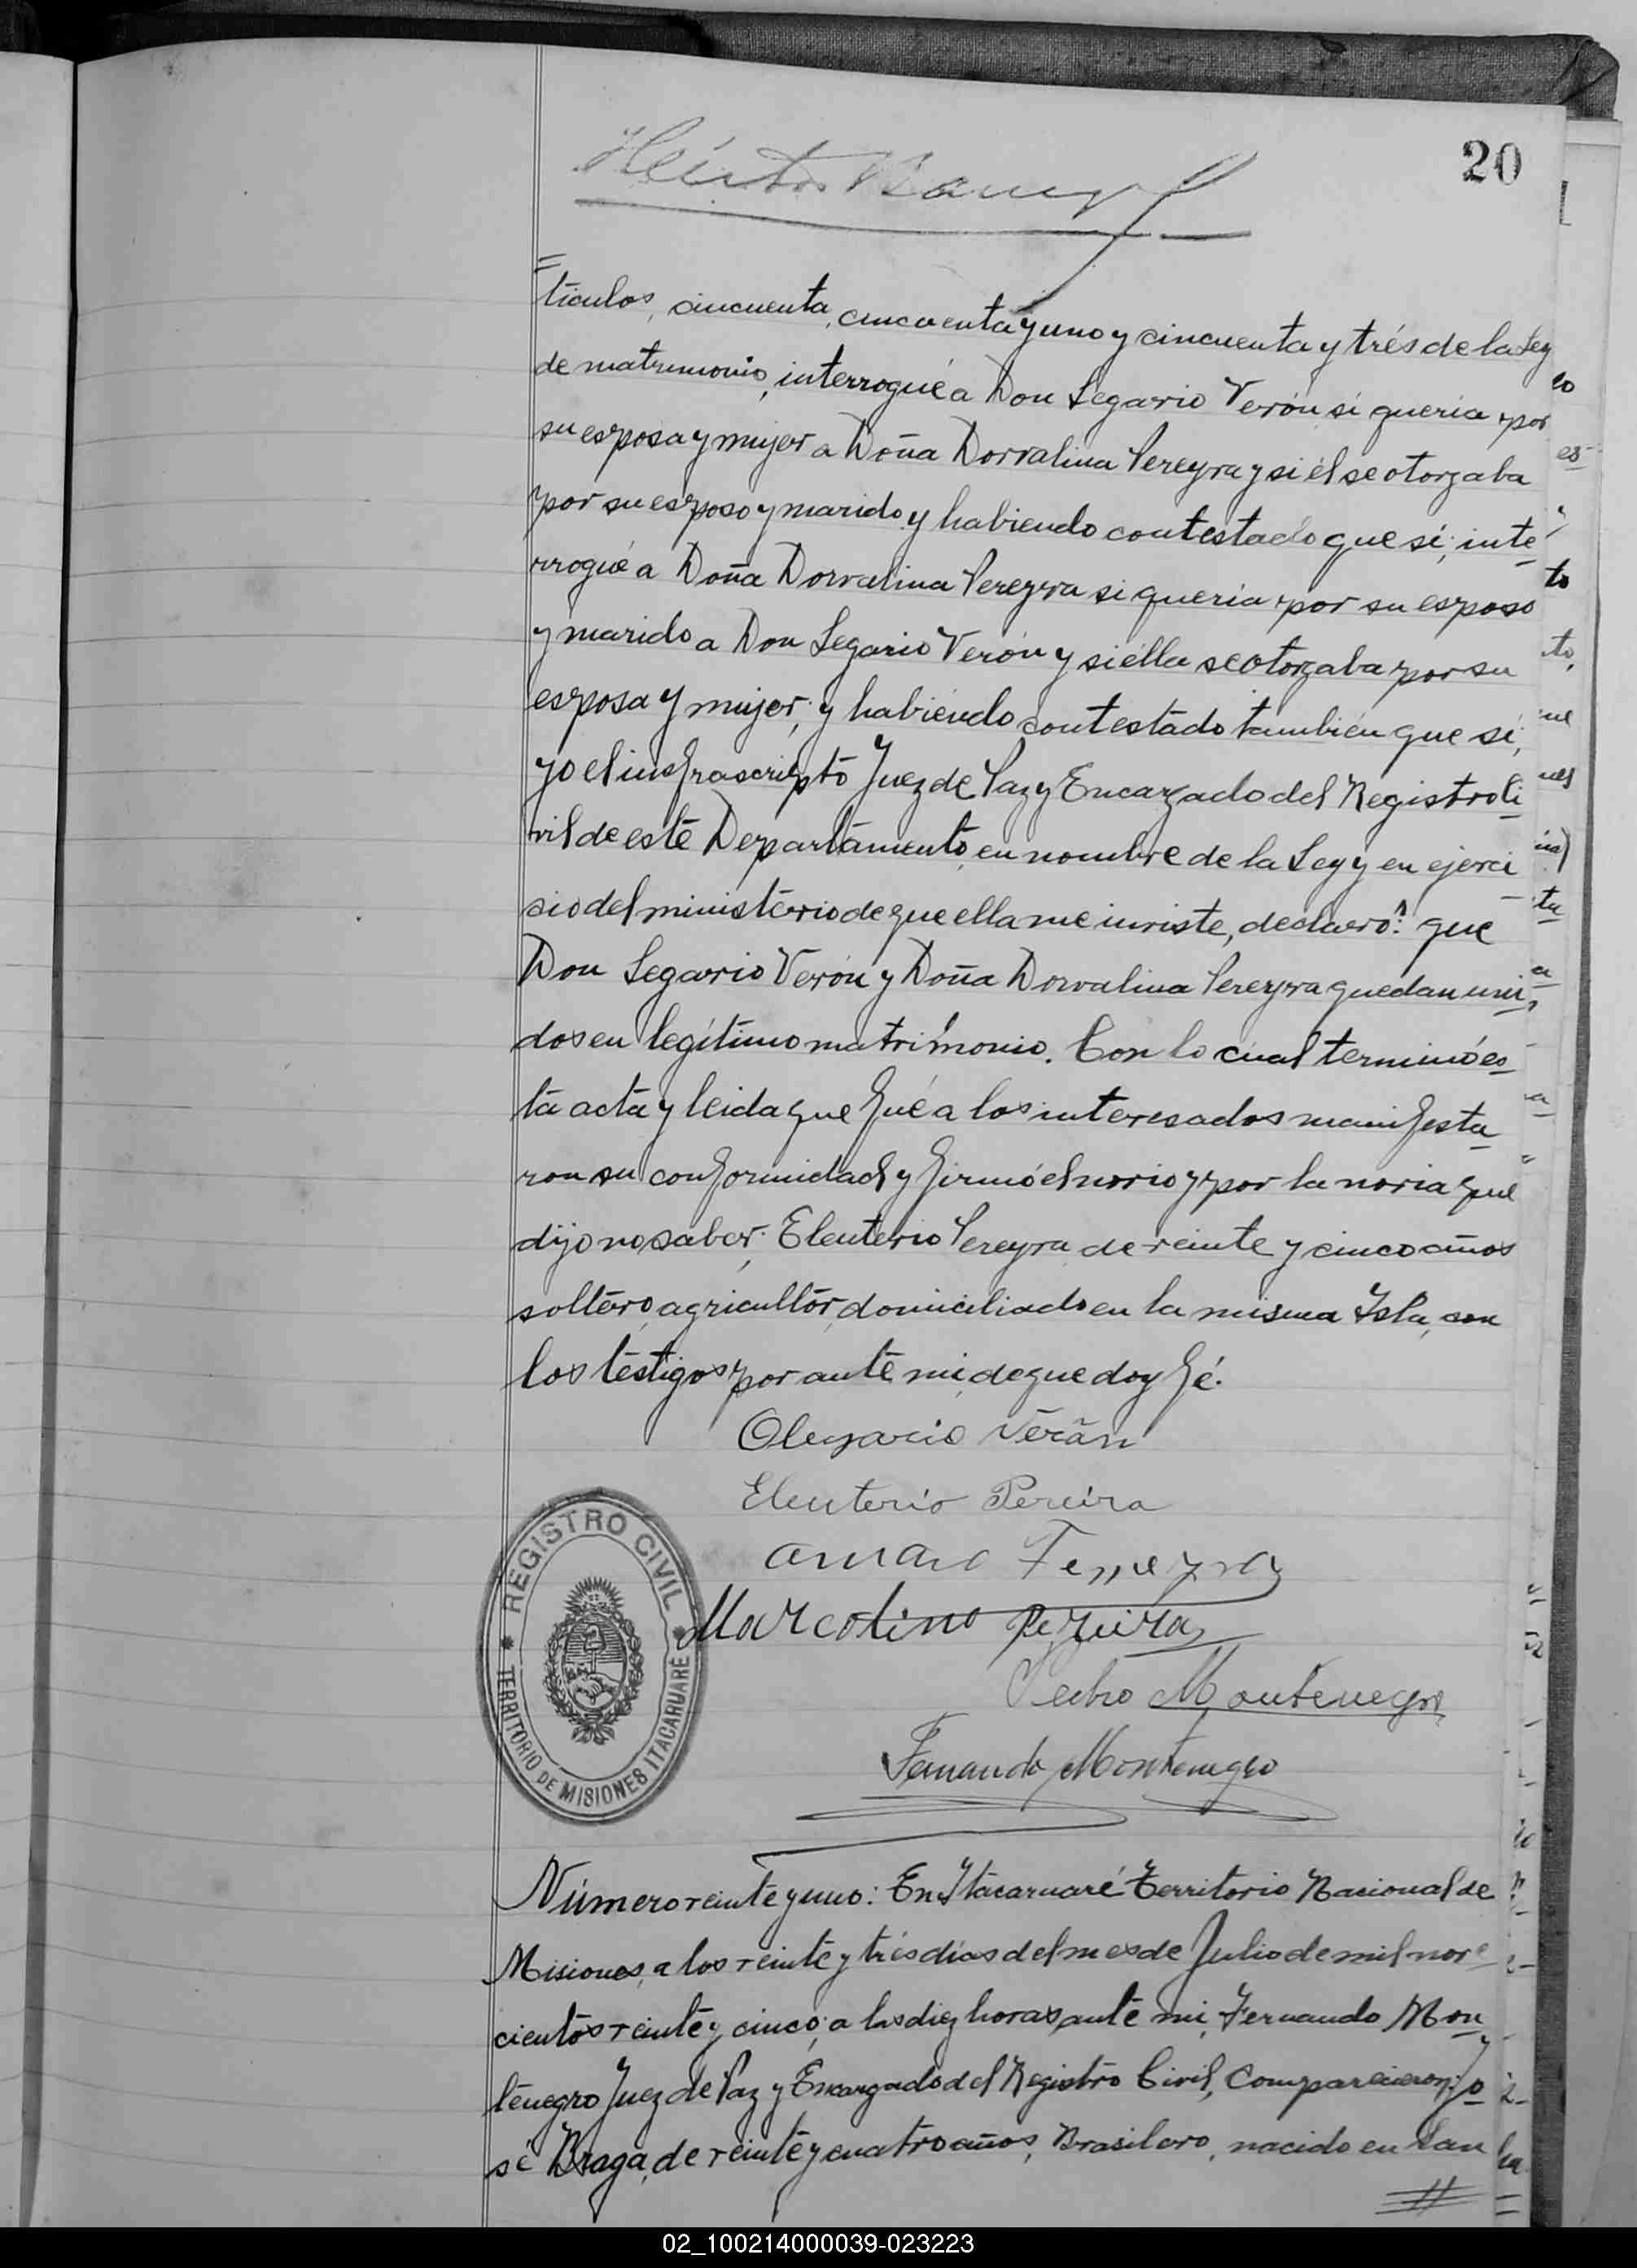 20
Héctor
=
tículos, cincuenta, cincuenta y uno y cincuenta y trés de la Ley
de matrimonio, interrogué a Don Legario Verón si quería por
su esposa y mujer a Doña Dorvalina Pereyra y si él se otorgaba
por su esposo y marido y habiendo contestado que sí; inte
rrogué a Doña Dorvalina Pereyra si quería por su esposo
y marido a Don Legario Verón y si élla se otorgaba por su
esposa y mujer; y habiéndo contestado también que sí,
yo el infrascripto Juez de Paz y Encargado del Registro Ci
vil de este Departamento, en nombre de la Ley y en ejerci
cio del ministerio de que ella me inviste, declaro: que
Don Legario Verón y Doña Dorvalina Pereyra quedan uni
dos en legítimo matrimonio. Con lo cual terminó es
ta acta y leida que fué a los interesados manifesta
ron su conformidad y firmó el novio y por la novia que
dijo no saber, Eleuterio Pereyra de veinte y cinco años
soltero, agricultor, domiciliado en la misma Isla, con
los testigos por ante mi, de que doy fé.
Olegario Verón
Eleuterio Pereira
Amaro Ferreyra
Marcolino Pereira
Pedro Montenegro
Fernando Montenegro
REGISTRO CIVIL
TERRITORIO DE MISIONES ITACARUARÉ
Número veinte y uno: En Itacaruaré Territorio Nacional de
Misiones, a los veinte y trés días del mes de Julio de mil nove
cientos veinte y cinco; a las diez horas, ante mi, Fernando Mon
tenegro Juez de Paz y Encargado del Registro Civil, Comparecieron: Jo
sé Braga, de veinte y cuatro años, Brasilero, nacido en San
02_100214000039-023223